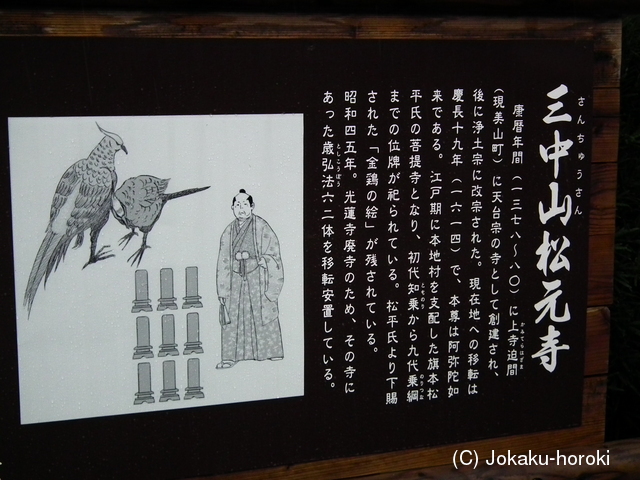 さんちゅうさん
三中山松元寺
康暦年間（一三七八～八〇）に上寺迫間
かみてらはざま
（現美山町）に天台宗の寺として創建され、
後に浄土宗に改宗された。現在地への移転は
慶長十九年（一六一四）で、本尊は阿弥陀如
来である。江戸期に本地村を支配した旗本松
平氏の菩提寺となり、初代知乗から九代乗綱
とものり
のりつな
までの位牌が祀られている。松平氏より下賜
された「金鶏の絵」が残されている。
昭和四五年。光蓮寺廃寺のため、その寺に
あった歳弘法六二体を移転安置している。
としこうぼう
(C) Jokaku-horoki